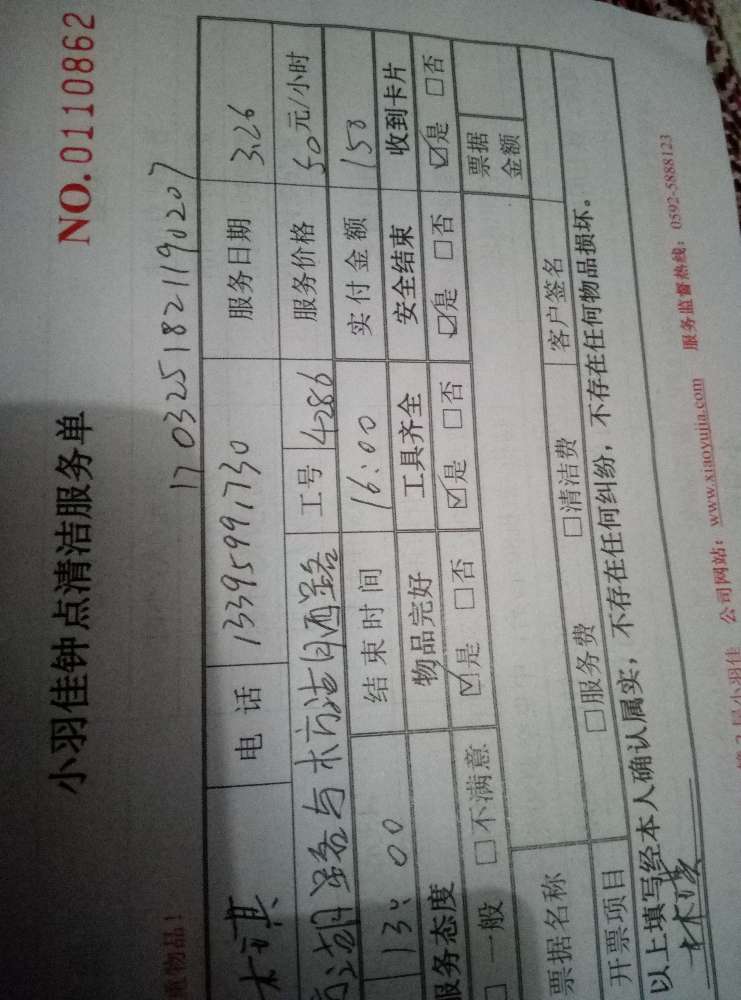 小羽佳钟点清洁服务单
NO.0110862
重物品！
17032518211190207
电话 13395991730 服务日期 3.26
工号 4286 服务价格 50元/小时
13:00 结束时间 16:00 实付金额 150
服务态度 物品完好 工具齐全 安全结束 收到卡片
□一般 □不满意 ☑是 □否 ☑是 □否 ☑是 □否 ☑是 □否
票据金额
票据名称
开票项目 □服务费 □清洁费 客户签名
以上填写经本人确认属实，不存在任何纠纷，不存在任何物品损坏。
公司网站：www.xiaoyujia.com 服务监督热线：0592-5888123